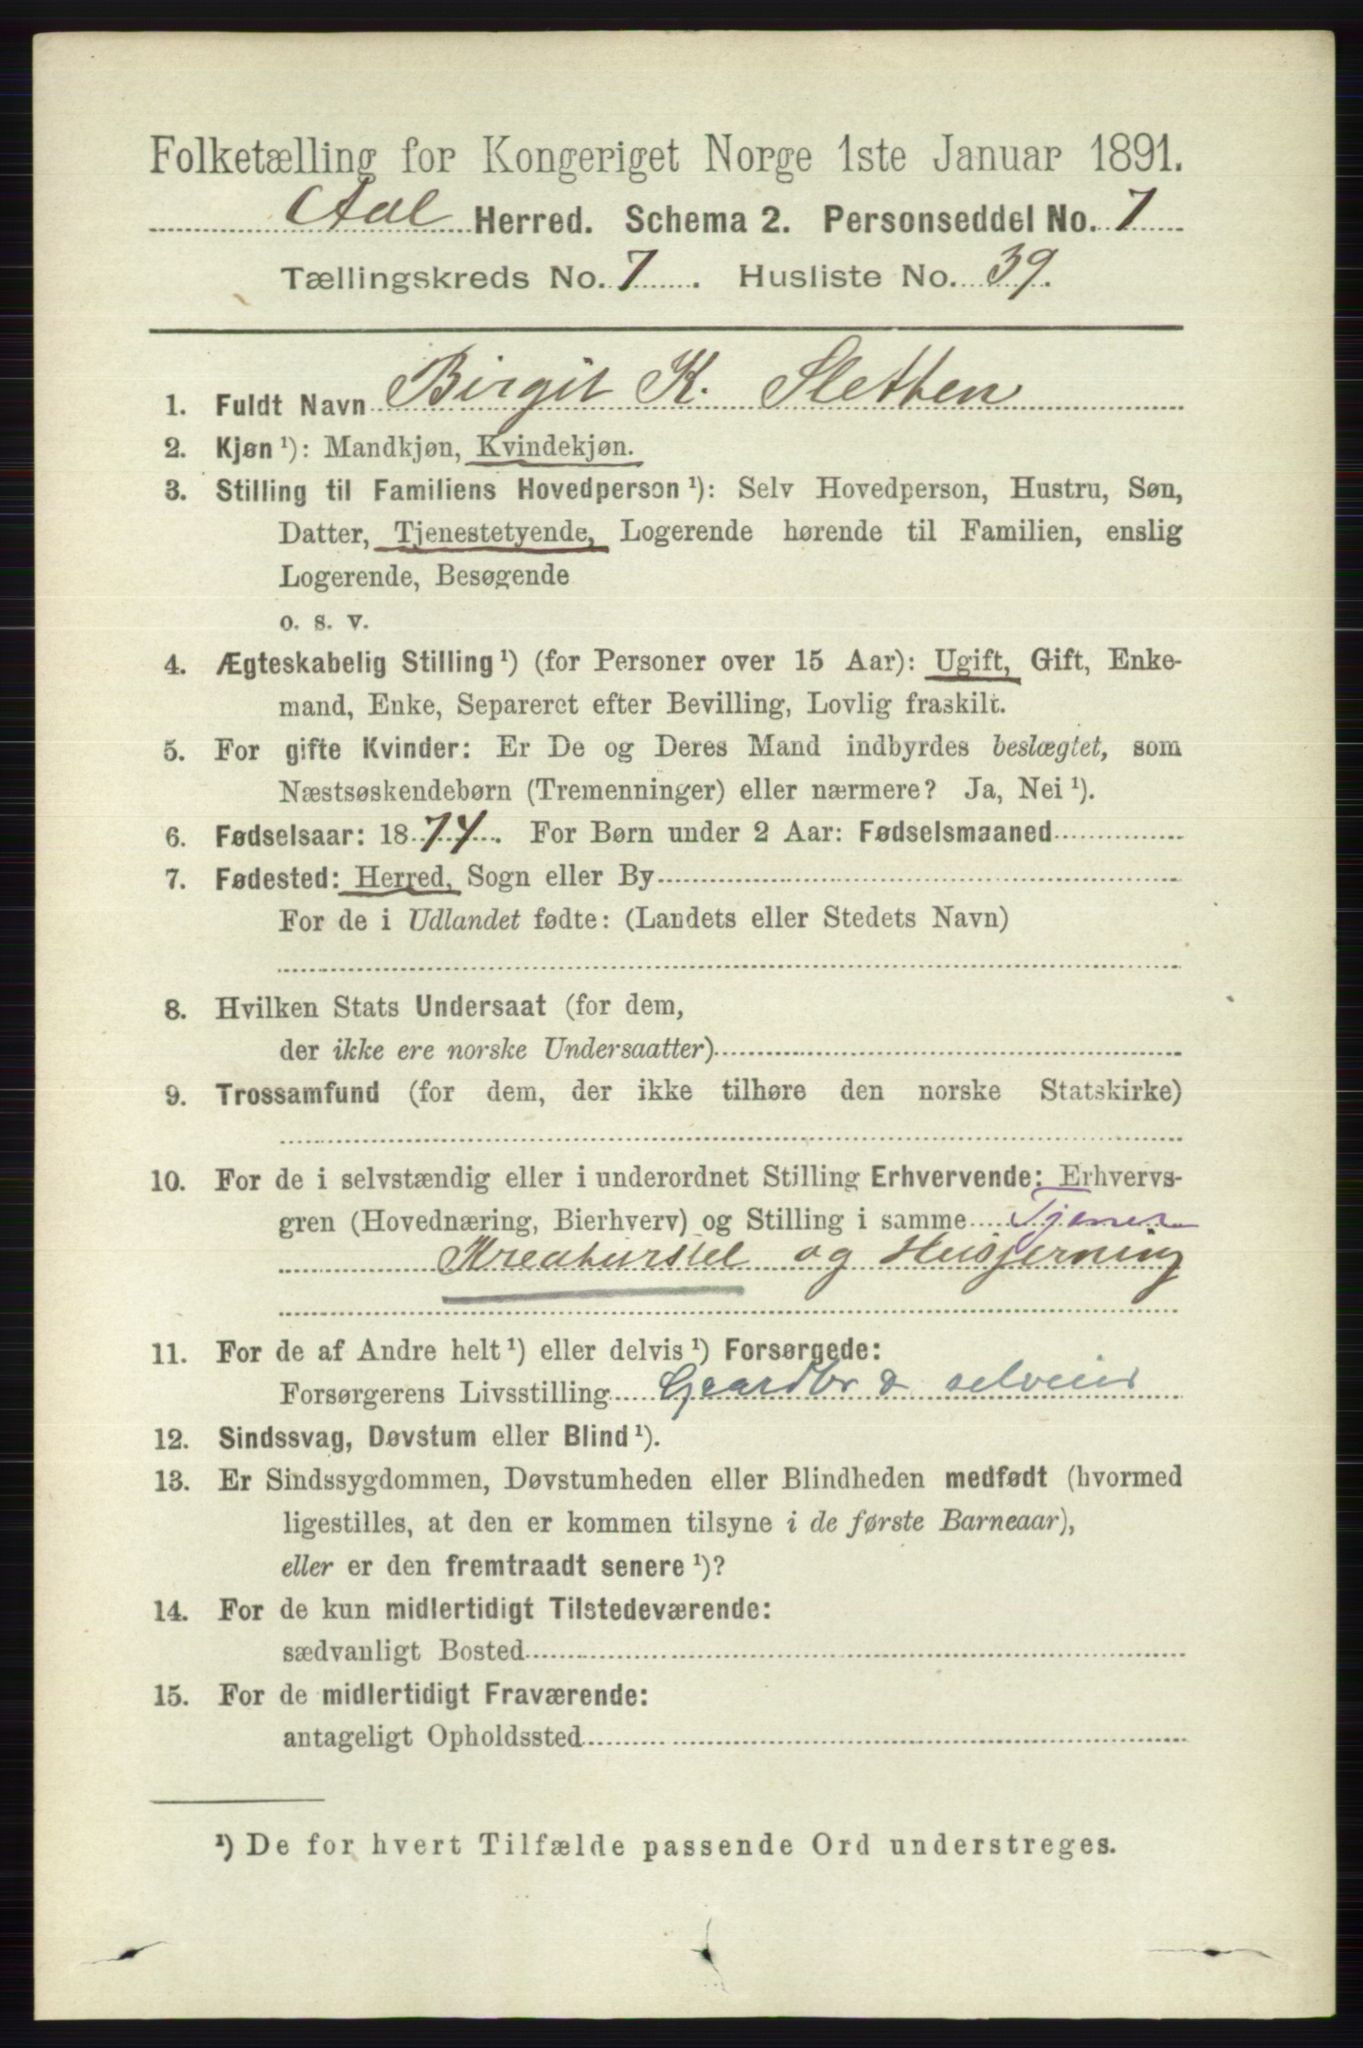 Folketælling for Kongeriget Norge 1ste Januar 1891.
Aal Herred. Schema 2. Personseddel No. 7
Tællingskreds No. 7. Husliste No. 39.
1. Fuldt Navn Birgit K. Sletten
2. Kjøn ¹): Mandkjøn, Kvindekjøn.
3. Stilling til Familiens Hovedperson ¹): Selv Hovedperson, Hustru, Søn,
Datter, Tjenestetyende, Logerende hørende til Familien, enslig
Logerende, Besøgende
o. s. v.
4. Ægteskabelig Stilling ¹) (for Personer over 15 Aar): Ugift, Gift, Enke-
mand, Enke, Separeret efter Bevilling, Lovlig fraskilt.
5. For gifte Kvinder: Er De og Deres Mand indbyrdes beslægtet, som
Næstsøskendebørn (Tremenninger) eller nærmere? Ja, Nei ¹).
6. Fødselsaar: 1874. For Børn under 2 Aar: Fødselsmaaned
7. Fødested: Herred, Sogn eller By
For de i Udlandet fødte: (Landets eller Stedets Navn)
8. Hvilken Stats Undersaat (for dem,
der ikke ere norske Undersaatter)
9. Trossamfund (for dem, der ikke tilhøre den norske Statskirke)
10. For de i selvstændig eller i underordnet Stilling Erhvervende: Erhvervs-
gren (Hovednæring, Bierhverv) og Stilling i samme Tjener
Kreaturstel og Husgjerning
11. For de af Andre helt ¹) eller delvis ¹) Forsørgede:
Forsørgerens Livsstilling Gaardbr & selveier
12. Sindssvag, Døvstum eller Blind ¹).
13. Er Sindssygdommen, Døvstumheden eller Blindheden medfødt (hvormed
ligestilles, at den er kommen tilsyne i de første Barneaar),
eller er den fremtraadt senere ¹)?
14. For de kun midlertidigt Tilstedeværende:
sædvanligt Bosted
15. For de midlertidigt Fraværende:
antageligt Opholdssted
¹) De for hvert Tilfælde passende Ord understreges.